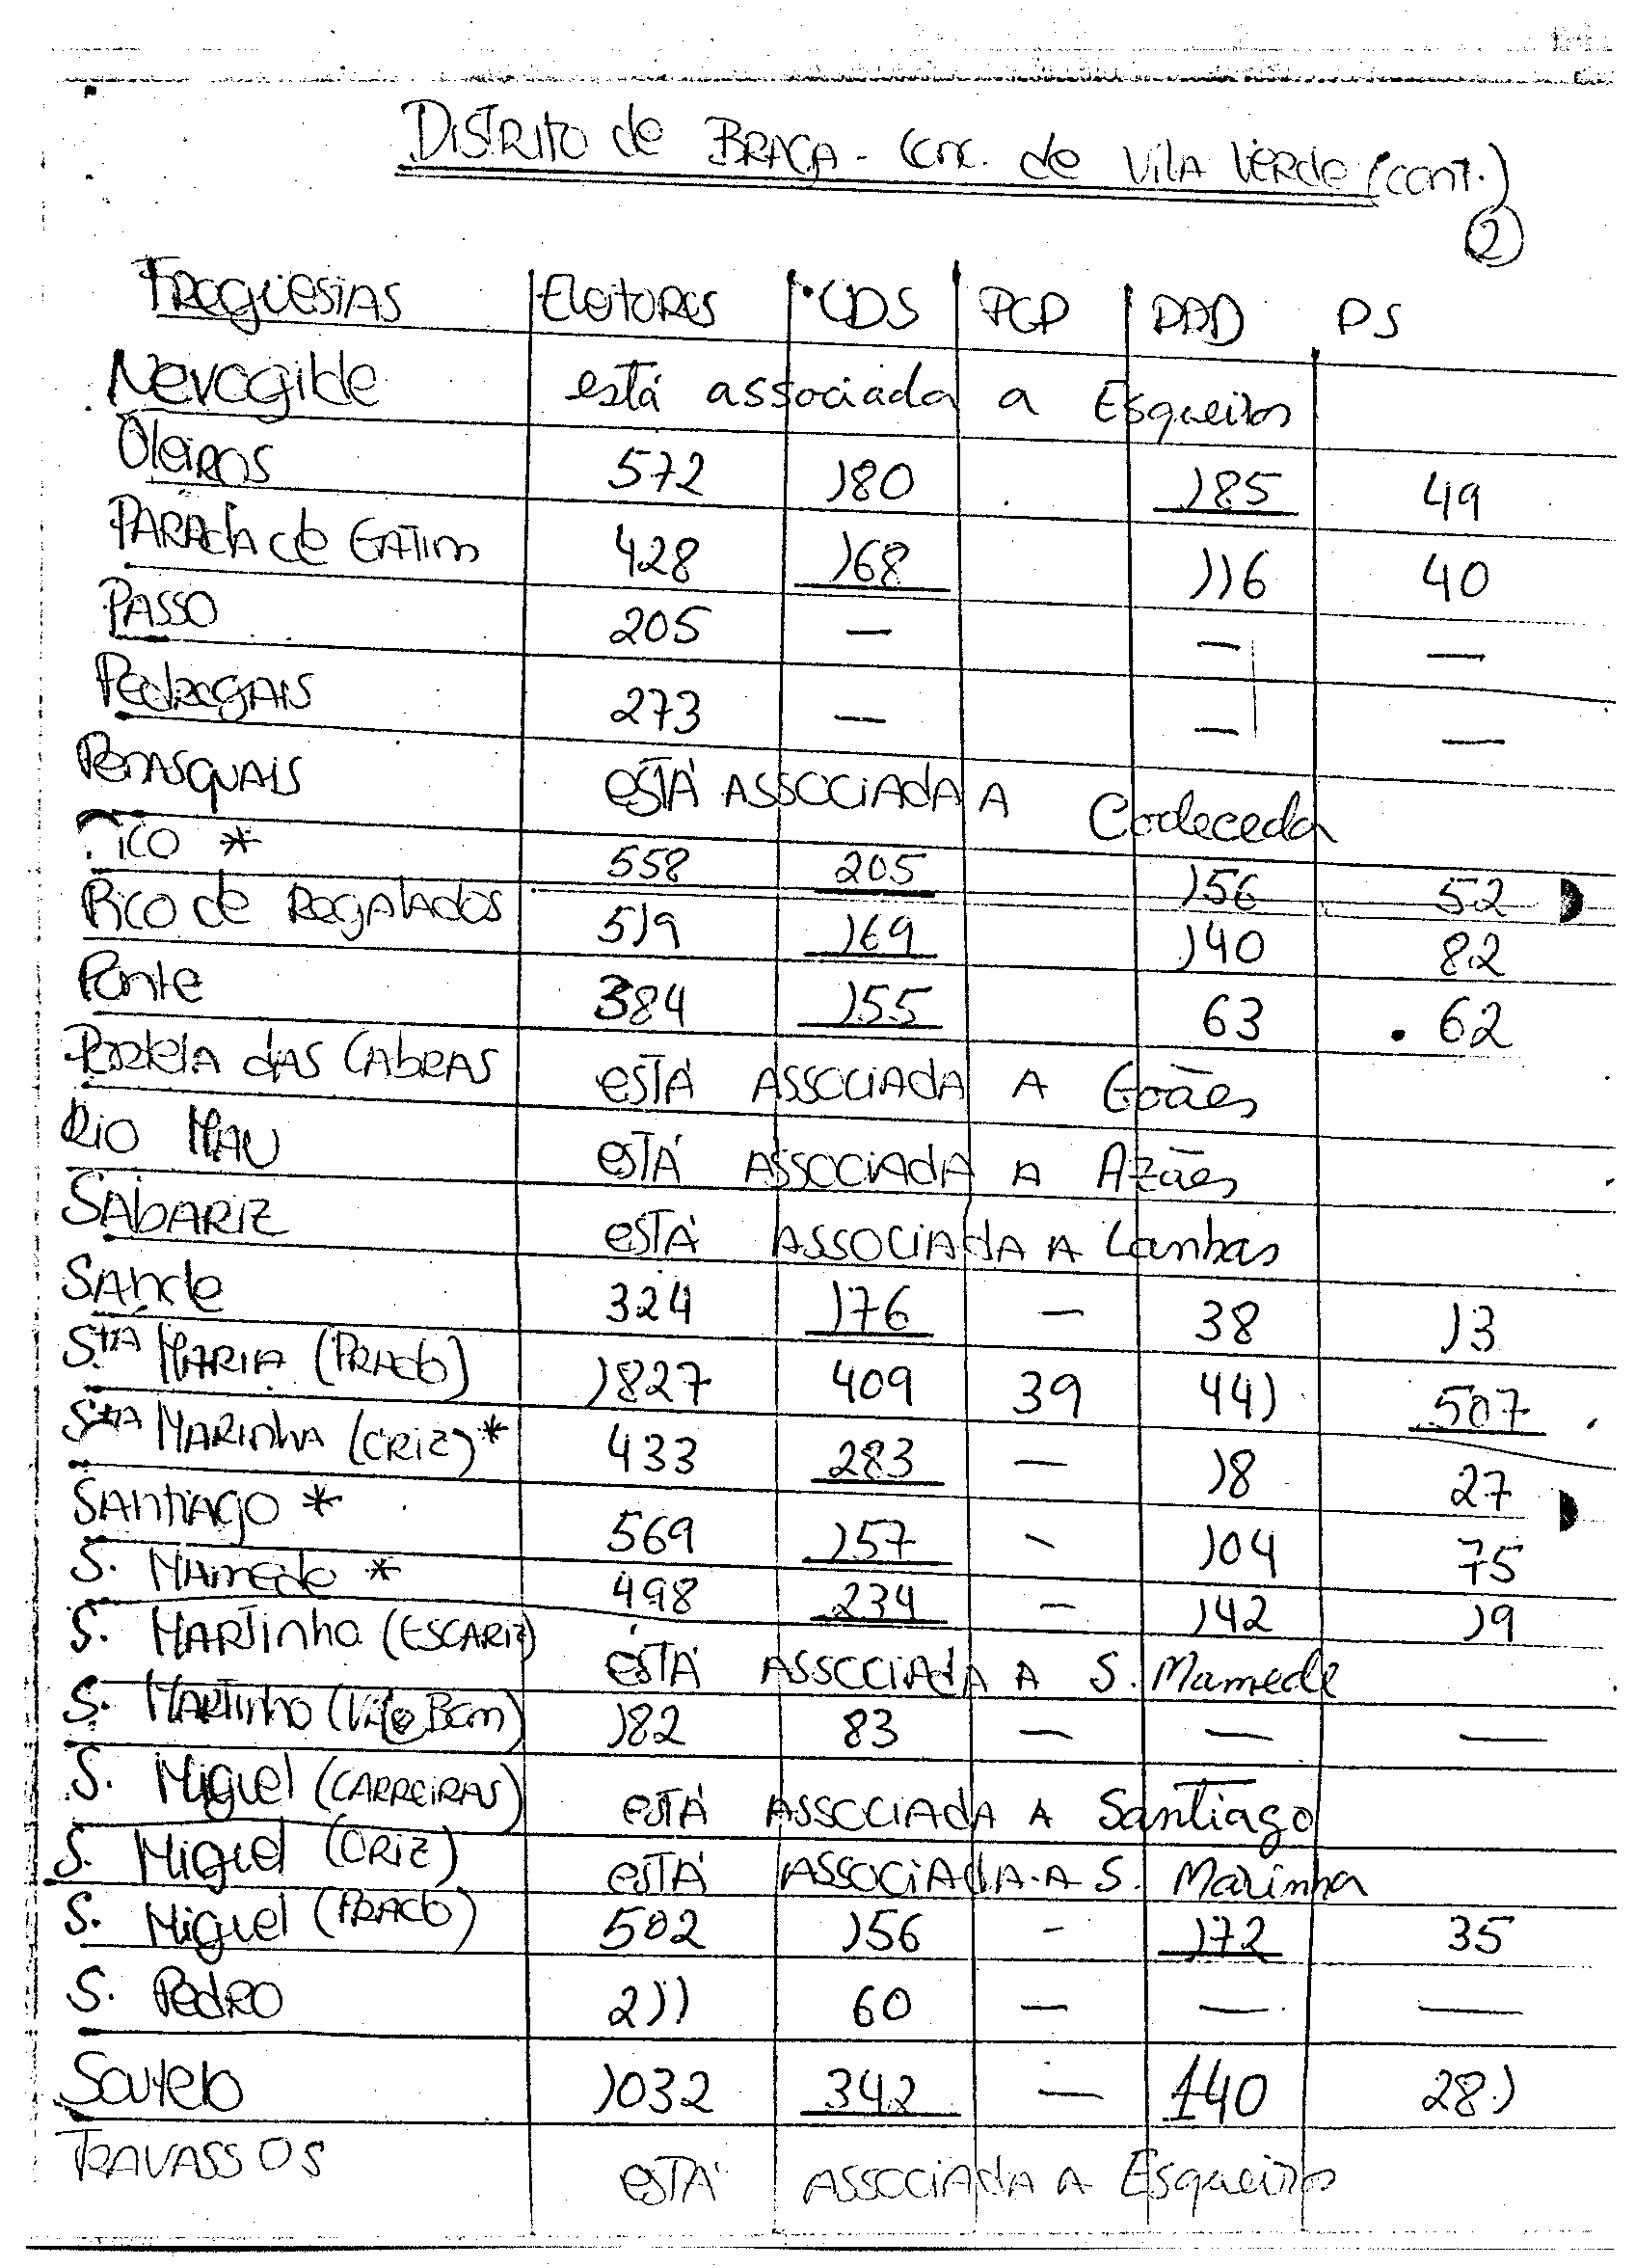 DISTRITO de BRAGA - Conc. de Vila Verde (cont.)
2
FREGUESIAS ELEITORES CDS PCP PPD PS
Nevogilde está associada a Esqueiros
Oleiros 572 180 185 49
PARADA de GATIM 428 168 116 40
PASSO 205 — — —
Pedregais 273 — — —
Penasquais ESTÁ ASSOCIADA A Codeceda
Pico * 558 205 156 52
Pico de Regalados 519 169 140 82
Ponte 384 155 63 62
Portela das Cabras ESTÁ ASSOCIADA A Goães
Rio Mau ESTÁ ASSOCIADA A Azães
SABARIZ ESTÁ ASSOCIADA A Lanhas
SANDE 324 176 — 38 13
STA MARIA (PRADO) 1827 409 39 441 507
STA MARINHA (ORIZ) * 433 283 — 18 27
SANTIAGO * 569 157 - 104 75
S. Mamede * 498 234 — 142 19
S. Martinho (ESCARIZ) ESTÁ ASSOCIADA A S. Mamede
S. Martinho (Valbom) 182 83 — — —
S. Miguel (CARREIRAS) ESTÁ ASSOCIADA A Santiago
S. Miguel (ORIZ) ESTÁ ASSOCIADA A S. Marinha
S. Miguel (PRADO) 502 156 - 172 35
S. Pedro 211 60 — — —
Soutelo 1032 342 — 140 281
TRAVASSOS ESTÁ ASSOCIADA A Esqueiros